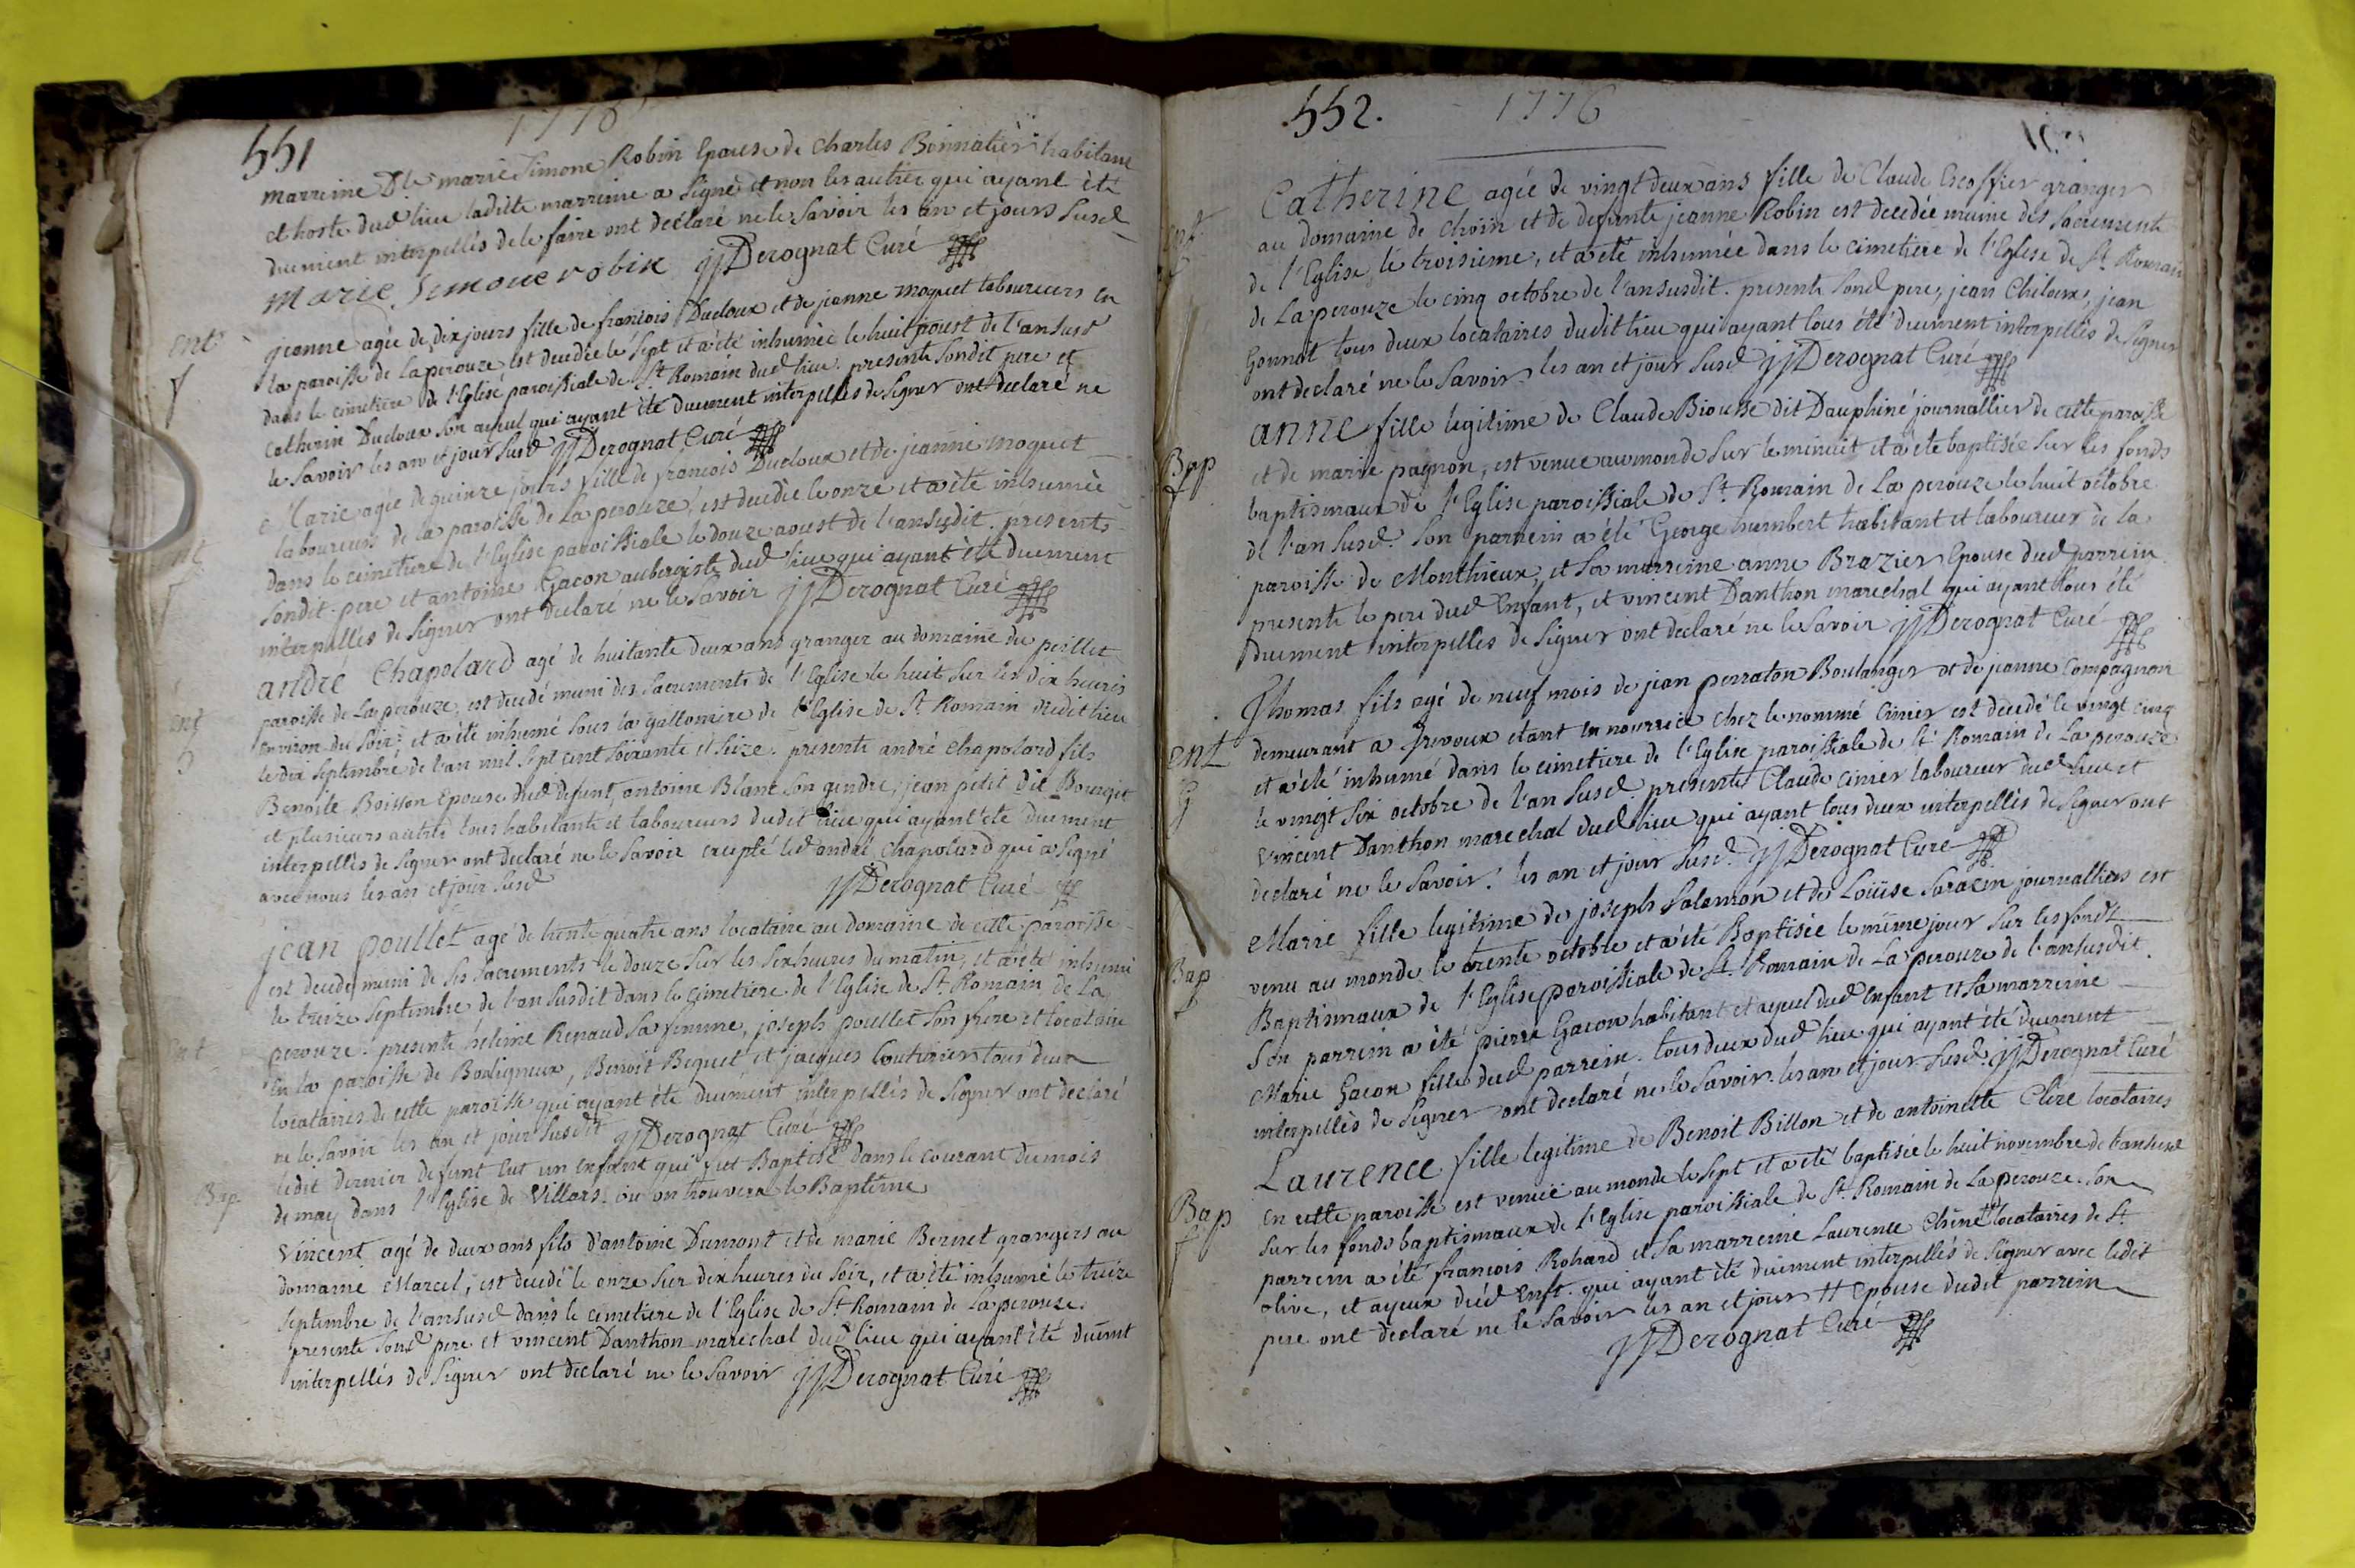 551
1776
marreine Dlle marie Simone Robin Epouse de Charles Bonnatier habitant
et hoste dud lieu ladite marreine a signé et non les autres qui ayant été
duement interpellés de le faire ont declaré ne le savoir les an et jours susd
Marie Simone robin jjDerognat Curé
ent
f
jeanne agée de dix jours fille de francois Ducloux et de jeanne moquet laboureurs en
la paroisse de Laperouze est decedée le sept et a été inhumée le huit aoust de l'an susd
dans le cimetiere de l'Eglise paroissiale de St Romain dud lieu. presents sondit pere et
Catherin Ducloux son ayeul qui ayant été duement interpellés de signer ont declaré ne
le savoir les an et jour susd jjDerognat Curé
ent
f
Marie agée de quinze jours fille de francois Ducloux et de jeanne moquet
laboureurs de la paroisse de Laperouze, est decedée le onze et a été inhumée
dans le cimetiere de l'Eglise paroissiale le douze aoust de l'an susdit. presents
sondit pere et antoine Gacon aubergiste dud lieu qui ayant été duement
interpellés de signer ont declaré ne le savoir jjDerognat Curé
ent
andré Chapolard agé de huitante deux ans granger au domaine du peillet
paroisse de Laperouze, est decedé muni des sacrements de l'Eglise le huit sur les dix heures
environ du soir, et a été inhumé sous la galloniere de l'Eglise de St Romain dudit lieu
le dix septembre de l'an mil sept cent soixante et seize. presents andré chapolard fils
Benoite Boisson Epouse dud defunt, antoine Blanc son gendre, jean petit dit Bourget
et plusieurs autres tous habitants et laboureurs dudit lieu qui ayant été duement
interpellés de signer ont declaré ne le savoir excepté led andré chapolard qui a signé
avec nous les an et jour susd
jjDerognat Curé
ent
jean poullet agé de trente quatre ans locataire au domaine de cette paroisse
est decedé muni de ses sacrements le douze sur les six heures du matin, et a été inhumé
le treize septembre de l'an susdit dans le cimetiere de l'Eglise de St Romain de La
perouze. presents heleine Renaud sa femme, joseph poullet son frere et locataire
en la paroisse de Bouligneux, Benoit Bequet et jacques Couturier tous deux
locataires de cette paroisse qui ayant été duement interpellés de signer ont declaré
ne le savoir les an et jour susdit jjDerognat Curé
Bap
ledit dernier defunt eut un enfant qui fut Baptisé dans le courant du mois
de may dans l'Eglise de Villars. ou on trouvera le Baptême
Vincent agé de deux ans fils d'antoine Dumont et de marie Bernet grangers au
domaine Marcel, est decedé le onze sur dix heures du soir, et a été inhumé le treize
septembre de l'an susd dans le cimetiere de l'Eglise de St Romain de Laperouze.
presents sond pere et vincent Danthon marechal dud lieu qui ayant été duemt
interpellés de signer ont declaré ne le savoir jjDerognat Curé
552.
1776
ent
Catherine agée de vingt deux ans fille de Claude Escoffier granger
au domaine de choin et de defunte jeanne Robin est decedée munie des sacrements
de l'Eglise le troisieme, et a été inhumée dans le cimetiere de l'Eglise de St Romain
de Laperouze le cinq octobre de l'an susdit. presents sond pere, jean Chiloux, jean
Gonnet tous deux locataires dudit lieu qui ayant tous été duement interpellés de signer
ont declaré ne le savoir les an et jour susd jjDerognat Curé
Bap
f
anne fille legitime de Claude Biousse dit Dauphiné journallier de cette paroisse
et de marie pagnon, est venue au monde sur le minuit et a été baptisée sur les fonds
baptismaux de l'Eglise paroissiale de St Romain de La perouze le huit octobre
de l'an susd. son parrein a été George humbert habitant et laboureur de la
paroisse de Monthieux, et sa marreine anne Brazier Epouse dud parrein
presents le pere dud Enfant, et vincent Danthon marechal qui ayant tous été
duement interpellés de signer ont declaré ne le savoir jjDerognat Curé
ent
G
Thomas fils agé de neuf mois de jean perraton Boulanger et de jeanne Compagnon
demeurant a Trevoux etant en nourrice chez le nommé Cinier est decedé le vingt cinq
et a été inhumé dans le cimetiere de l'Eglise paroissiale de St Romain de La perouze
le vingt six octobre de l'an susd. presents Claude Cinier laboureur dud lieu et
Vincent Danthon marechal dud lieu qui ayant tous deux interpellés de signer ont
declaré ne le savoir. les an et jour susd. jjDerognat Curé
Bap
f
Marie fille legitime de joseph Salomon et de Loüise Sarazin journalliers est
venu au monde le trente octobre et a été Baptisée le même jour sur les fonds
Baptismaux de l'Eglise paroissiale de St Romain de La perouze de l'an susdit.
Son parrein a été pierre Gacon habitant et ayeul dud Enfant et sa marreine
Marie Gacon fille dud parrein. tous deux dud lieu qui ayant été duement
interpellés de signer ont declaré ne le savoir. les an et jour susd. jjDerognat Curé
Bap
f
Laurence fille legitime de Benoit Billon et de antoinette Clere locataires
en cette paroisse est venuë au monde le sept et a été baptisée le huit novembre de l'an susd
sur les fonds baptismaux de l'Eglise paroissiale de St Romain de La perouze. son
parrein a été francois Rohard et sa marreine Laurence Chêne # locataires de St
olive, et ayeux dud Enft. qui ayant été duement interpellés de signer avec ledit
pere ont declaré ne le savoir les an et jour # Epouse dudit parrein
jjDerognat Curé